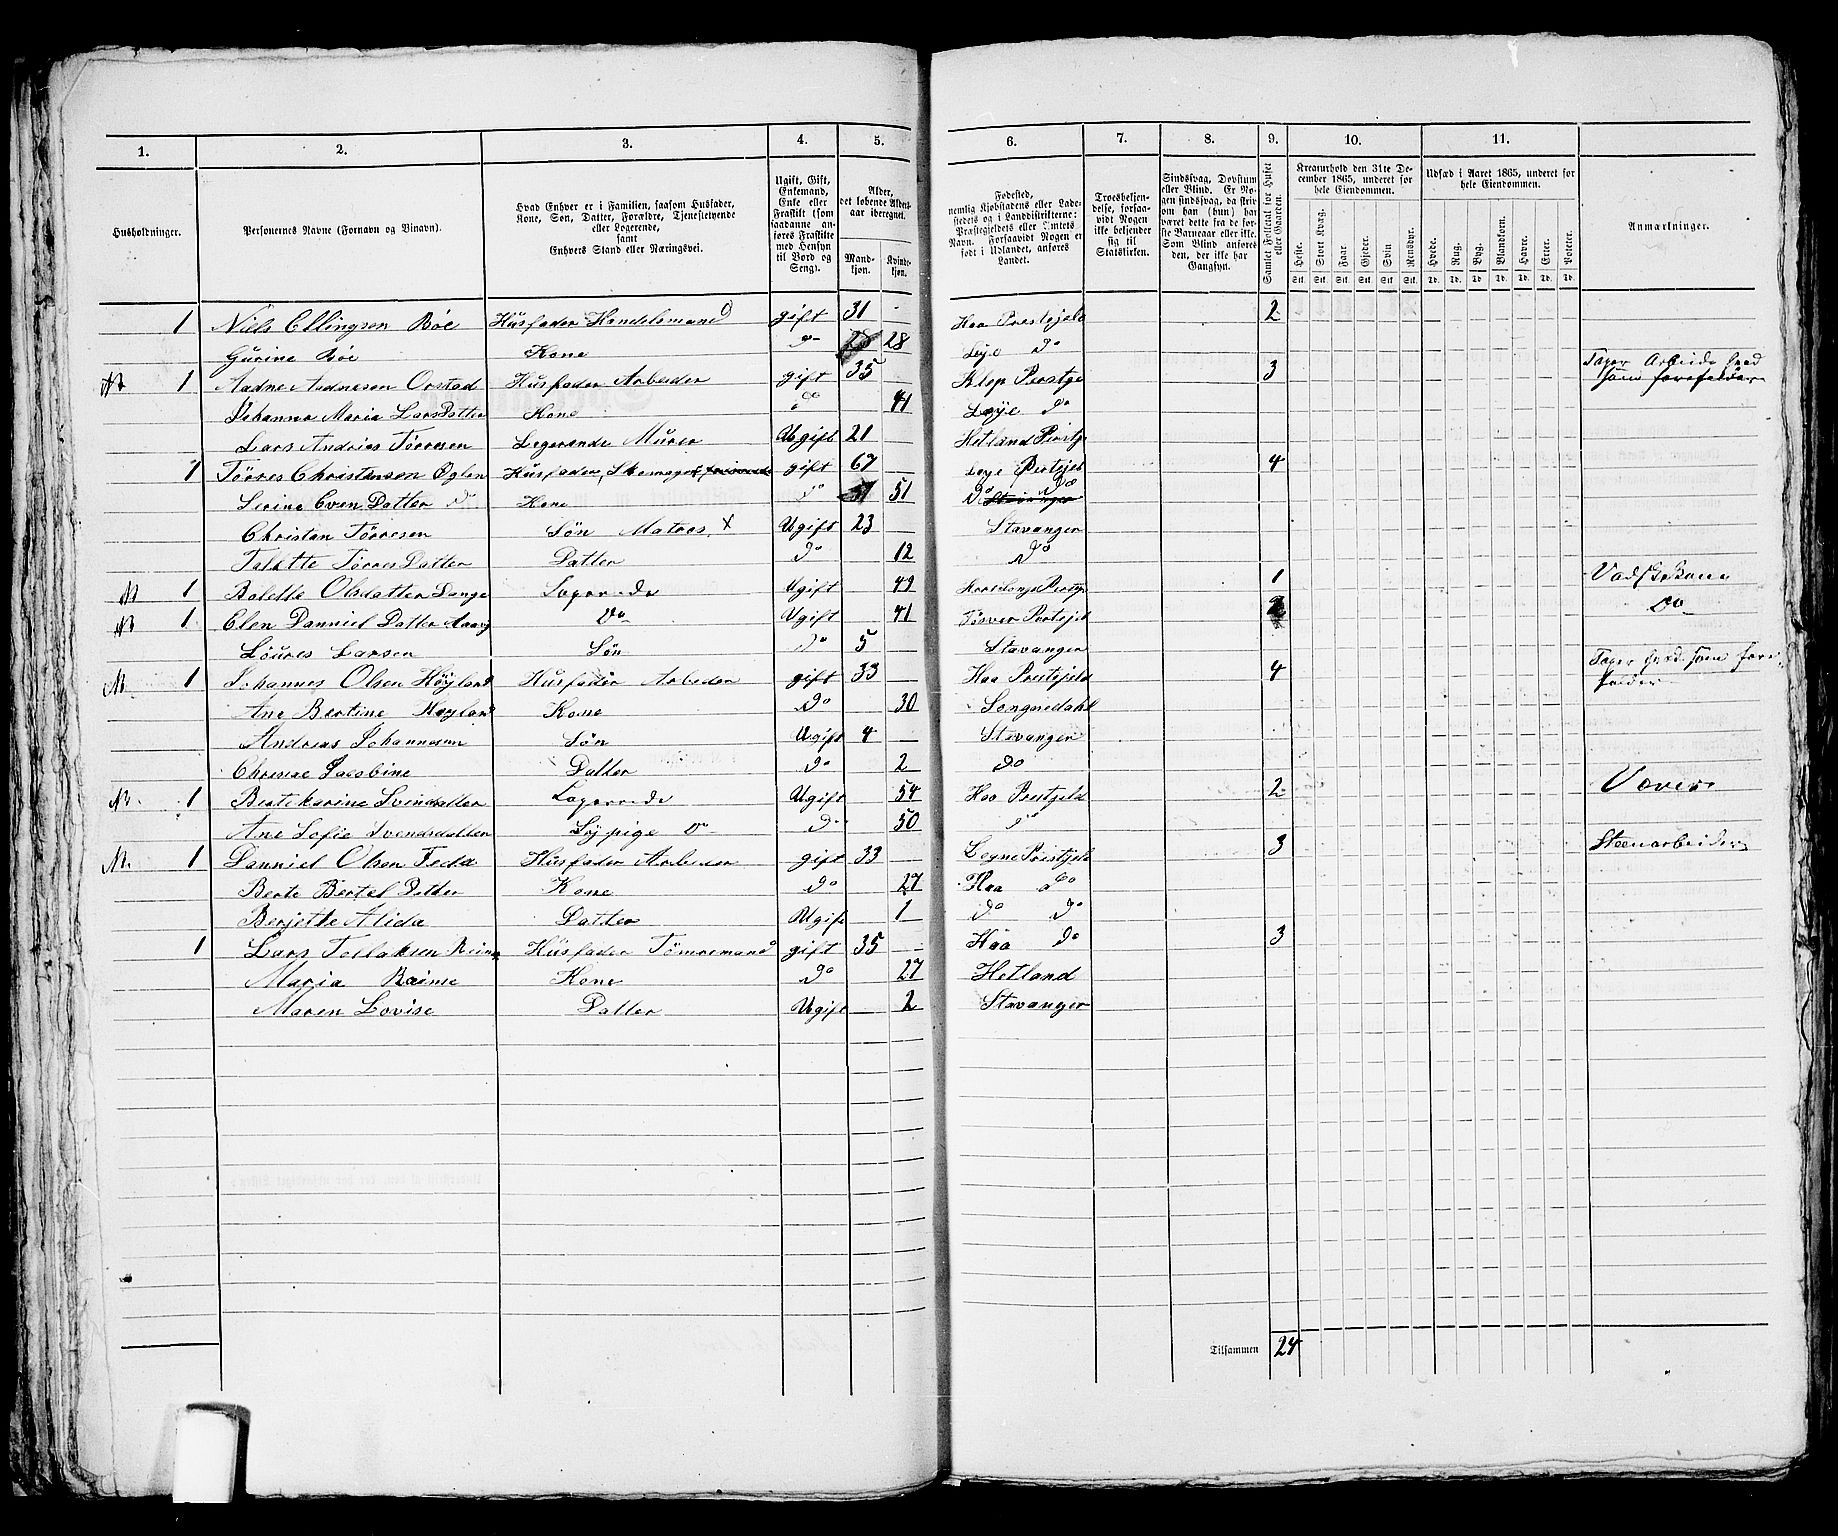 1. 2. 3. 4. 5. 6. 7. 8. 9. 10. 11.
Husholdninger.
Personernes Navne (Fornavn og Binavn).
Hvad Enhver er i Familien, saasom Husfader, Kone, Søn, Datter, Forældre, Tjenestetyende eller Logerende, samt Enhvers Stand eller Næringsvei.
Ugift, Gift, Enkemand, Enke eller Fraskilt (som saadanne anføres Fraskilte med Hensyn til Bord og Seng).
Alder, det løbende Aldersaar iberegnet.
Mandkjøn. Kvindekjøn.
Fødested, nemlig Kjøbstadens eller Ladestedets og i Landdistrikterne: Præstegjeldets eller Sognets Navn. Forsaavidt Nogen er født i Udlandet, anføres Landet.
Troesbekjendelse, forsaavidt Nogen ikke bekjender sig til Statskirken.
Sindssvag, Døvstum eller Blind. Er Nogen sindssvag, da skrives om han (hun) har været dette fra de første Barneaar eller ikke. Som Blind anføres den, der ikke har Gangsyn.
Samlet Folketal for Huset eller Gaarden.
Kreaturhold den 31te December 1865, underet for hele Eiendommen.
Heste. Stort Kvæg. Faar. Gjeder. Svin Rensdyr.
Stk. Stk. Stk. Stk. Stk. Stk.
Udsæd i Aaret 1865, underet for hele Eiendommen.
Hvede. Rug. Byg. Blandkorn. Havre. Erter. Poteter.
Td. Td. Td. Td. Td. Td. Td.
Anmærkninger.
1 Niels Ellingsen Bøe Husfader Handelsmand gift 31 - Haa Prestejeld 2
Gurine Bøe Kone do 28 Loye do
N 1 Aadne Aadnesen Orstad Husfader Arbeider gift 35 Klep Prestge 3 Tager Arbeide hvad som forefalder
Johanna Maria LarsDatter Kone do 41 Loye do
Lars Andrias Törresen Logerende Murer Ugift 21 Hetland Prestg
1 Törres Christensen Oglen Husfader, Skomager gift 67 Loye Prestejeld 4
Serine EvenDatter do Kone do 51 do do
Christan Törresen Søn Matros X Ugift 23 Stavanger
Talette TörresDatter Datter do 12 do
N 1 Bolette Olsdatter Lange Logerende Ugift 49 1 VadskeKone
N 1 Elen DannielDatter do Ugift 41 Prestejel 2 do
Loures Larsen Søn do 5 Stavanger
N. 1 Johannes Olsen Höyland Husfader Arbeder gift 33 Haa Prestejeld 4 Tager hvad som forefalder
Ane Bertine Høyland Kone do 30 Songnedahl
Andreas Johannesen Søn Ugift 4 Stavanger
Jacobine Datter do 2 do
N. 1 Berte Karine Svendsdatter Logerende Ugift 54 Haa Prestejeld 2 Væver
Ane Sofie Svendsdatter do do 50 do
N. 1 Danniel Olsen Feda Husfader Arbeder gift 33 Prestjeld 3 Steenarbeider
Berte Bertel Datter Kone do 27 Haa do
Berjette Alida Datter Ugift 1 do do
1 Lars Tollaksen Husfader Tömremand gift 35 Haa do 3
Maria Reime Kone do 27 Hetland
Maren Lovise Datter Ugift 2 Stavanger
Tilsammen 24